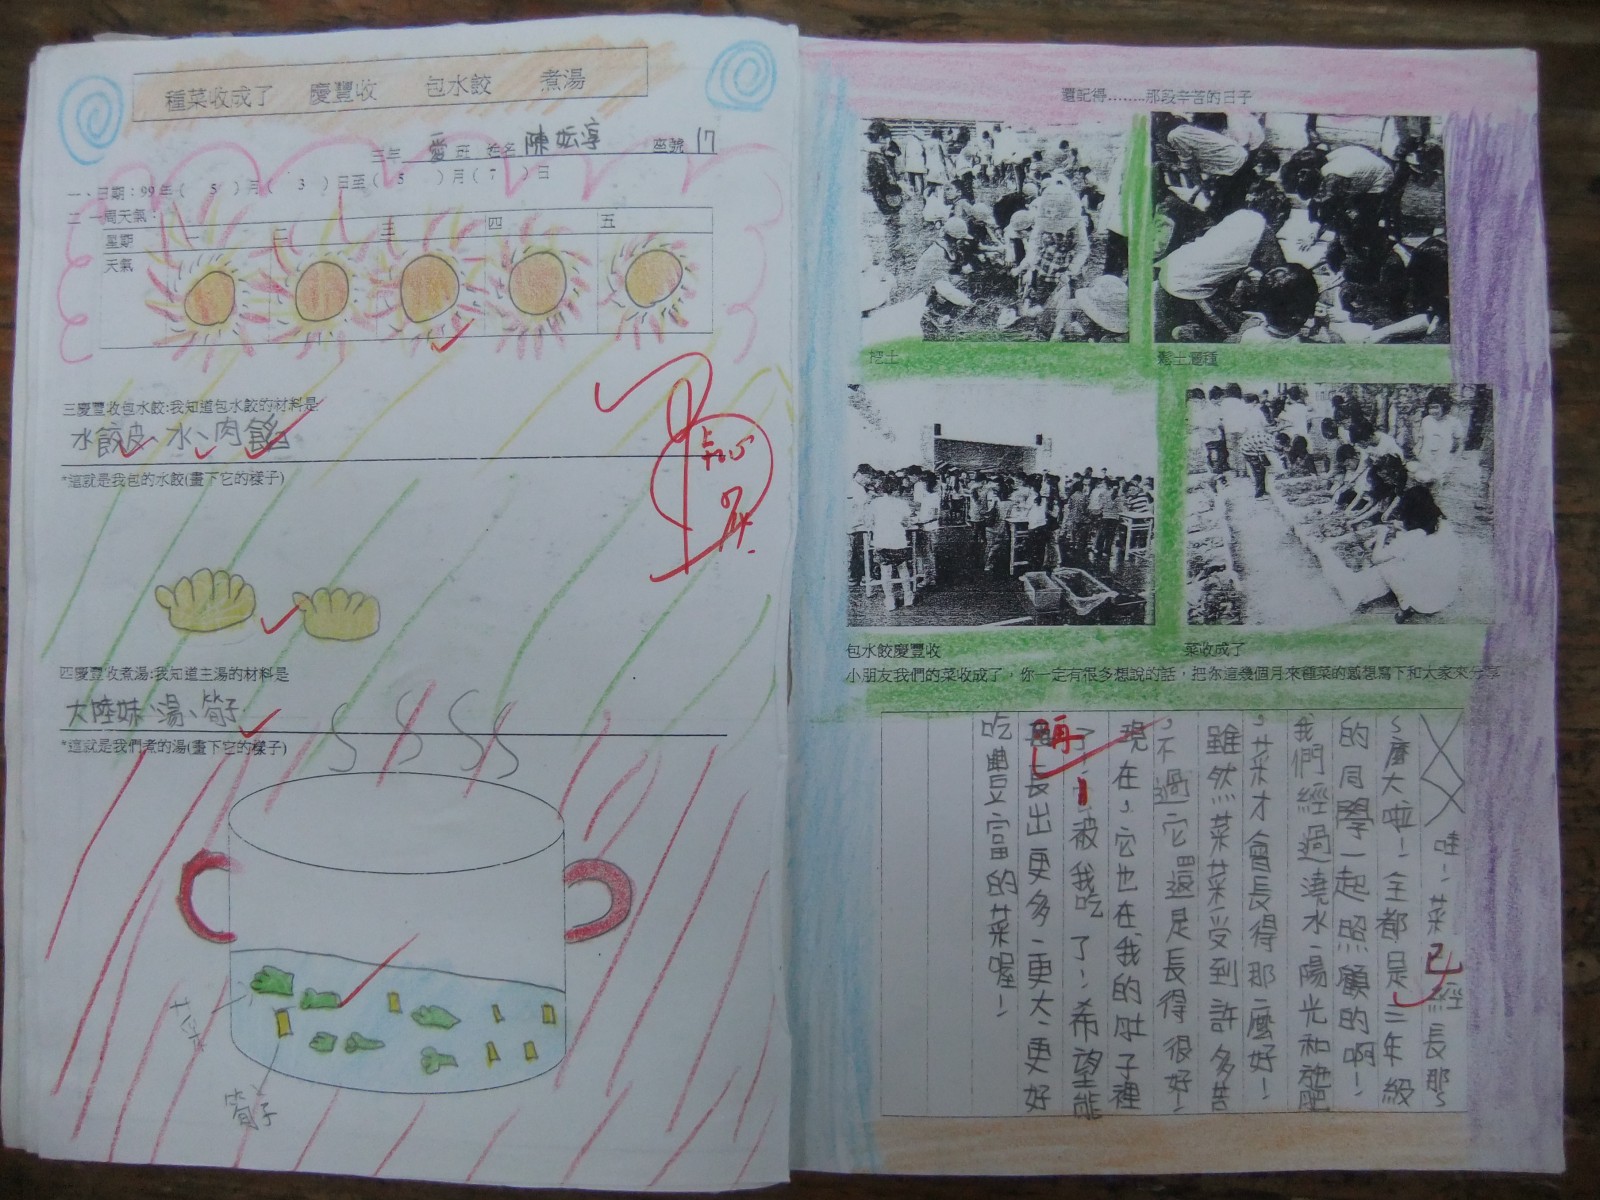 種菜收成了 慶豐收 包水餃 煮湯
三年 愛 班 姓名 陳妘淳 座號 17
一、日期：99年( 5 )月( 3 )日至( 5 )月( 7 )日
二 一周天氣：
星期 一 二 三 四 五
天氣
三慶豐收包水餃:我知道包水餃的材料是
水餃皮、水、肉餡
*這就是我包的水餃(畫下它的樣子)
四慶豐收煮湯:我知道主湯的材料是
大陸妹、湯、筍子
*這就是我們煮的湯(畫下它的樣子)
筍子
還記得........那段辛苦的日子
挖土
鬆土電種
包水餃慶豐收
菜收成了
小朋友我們的菜收成了，你一定有很多想說的話，把你這幾個月來種菜的感想寫下和大家來分享
哇！菜已經長那
麼大啦！全都是三年級
的同學一起照顧的啊！
我們經過澆水、陽光和施肥
，菜才會長得那麼好！
雖然菜菜受到許多苦
，不過它還是長得很好！
現在，它也在我的肚子裡
了！被我吃了！希望能
再長出更多、更大、更好
吃豐富的菜喔！